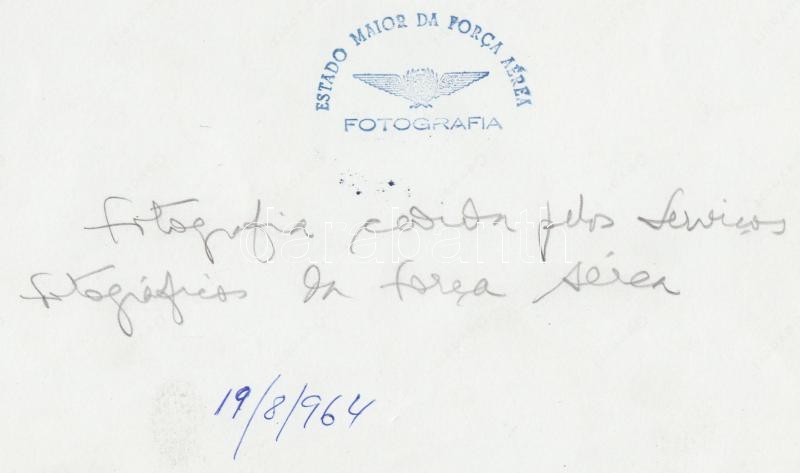 ESTADO MAIOR DA FORÇA AÉREA
FOTOGRAFIA
fotografia cedida pelos Serviços
darabanth
fotográficos da força Aérea
19/8/964